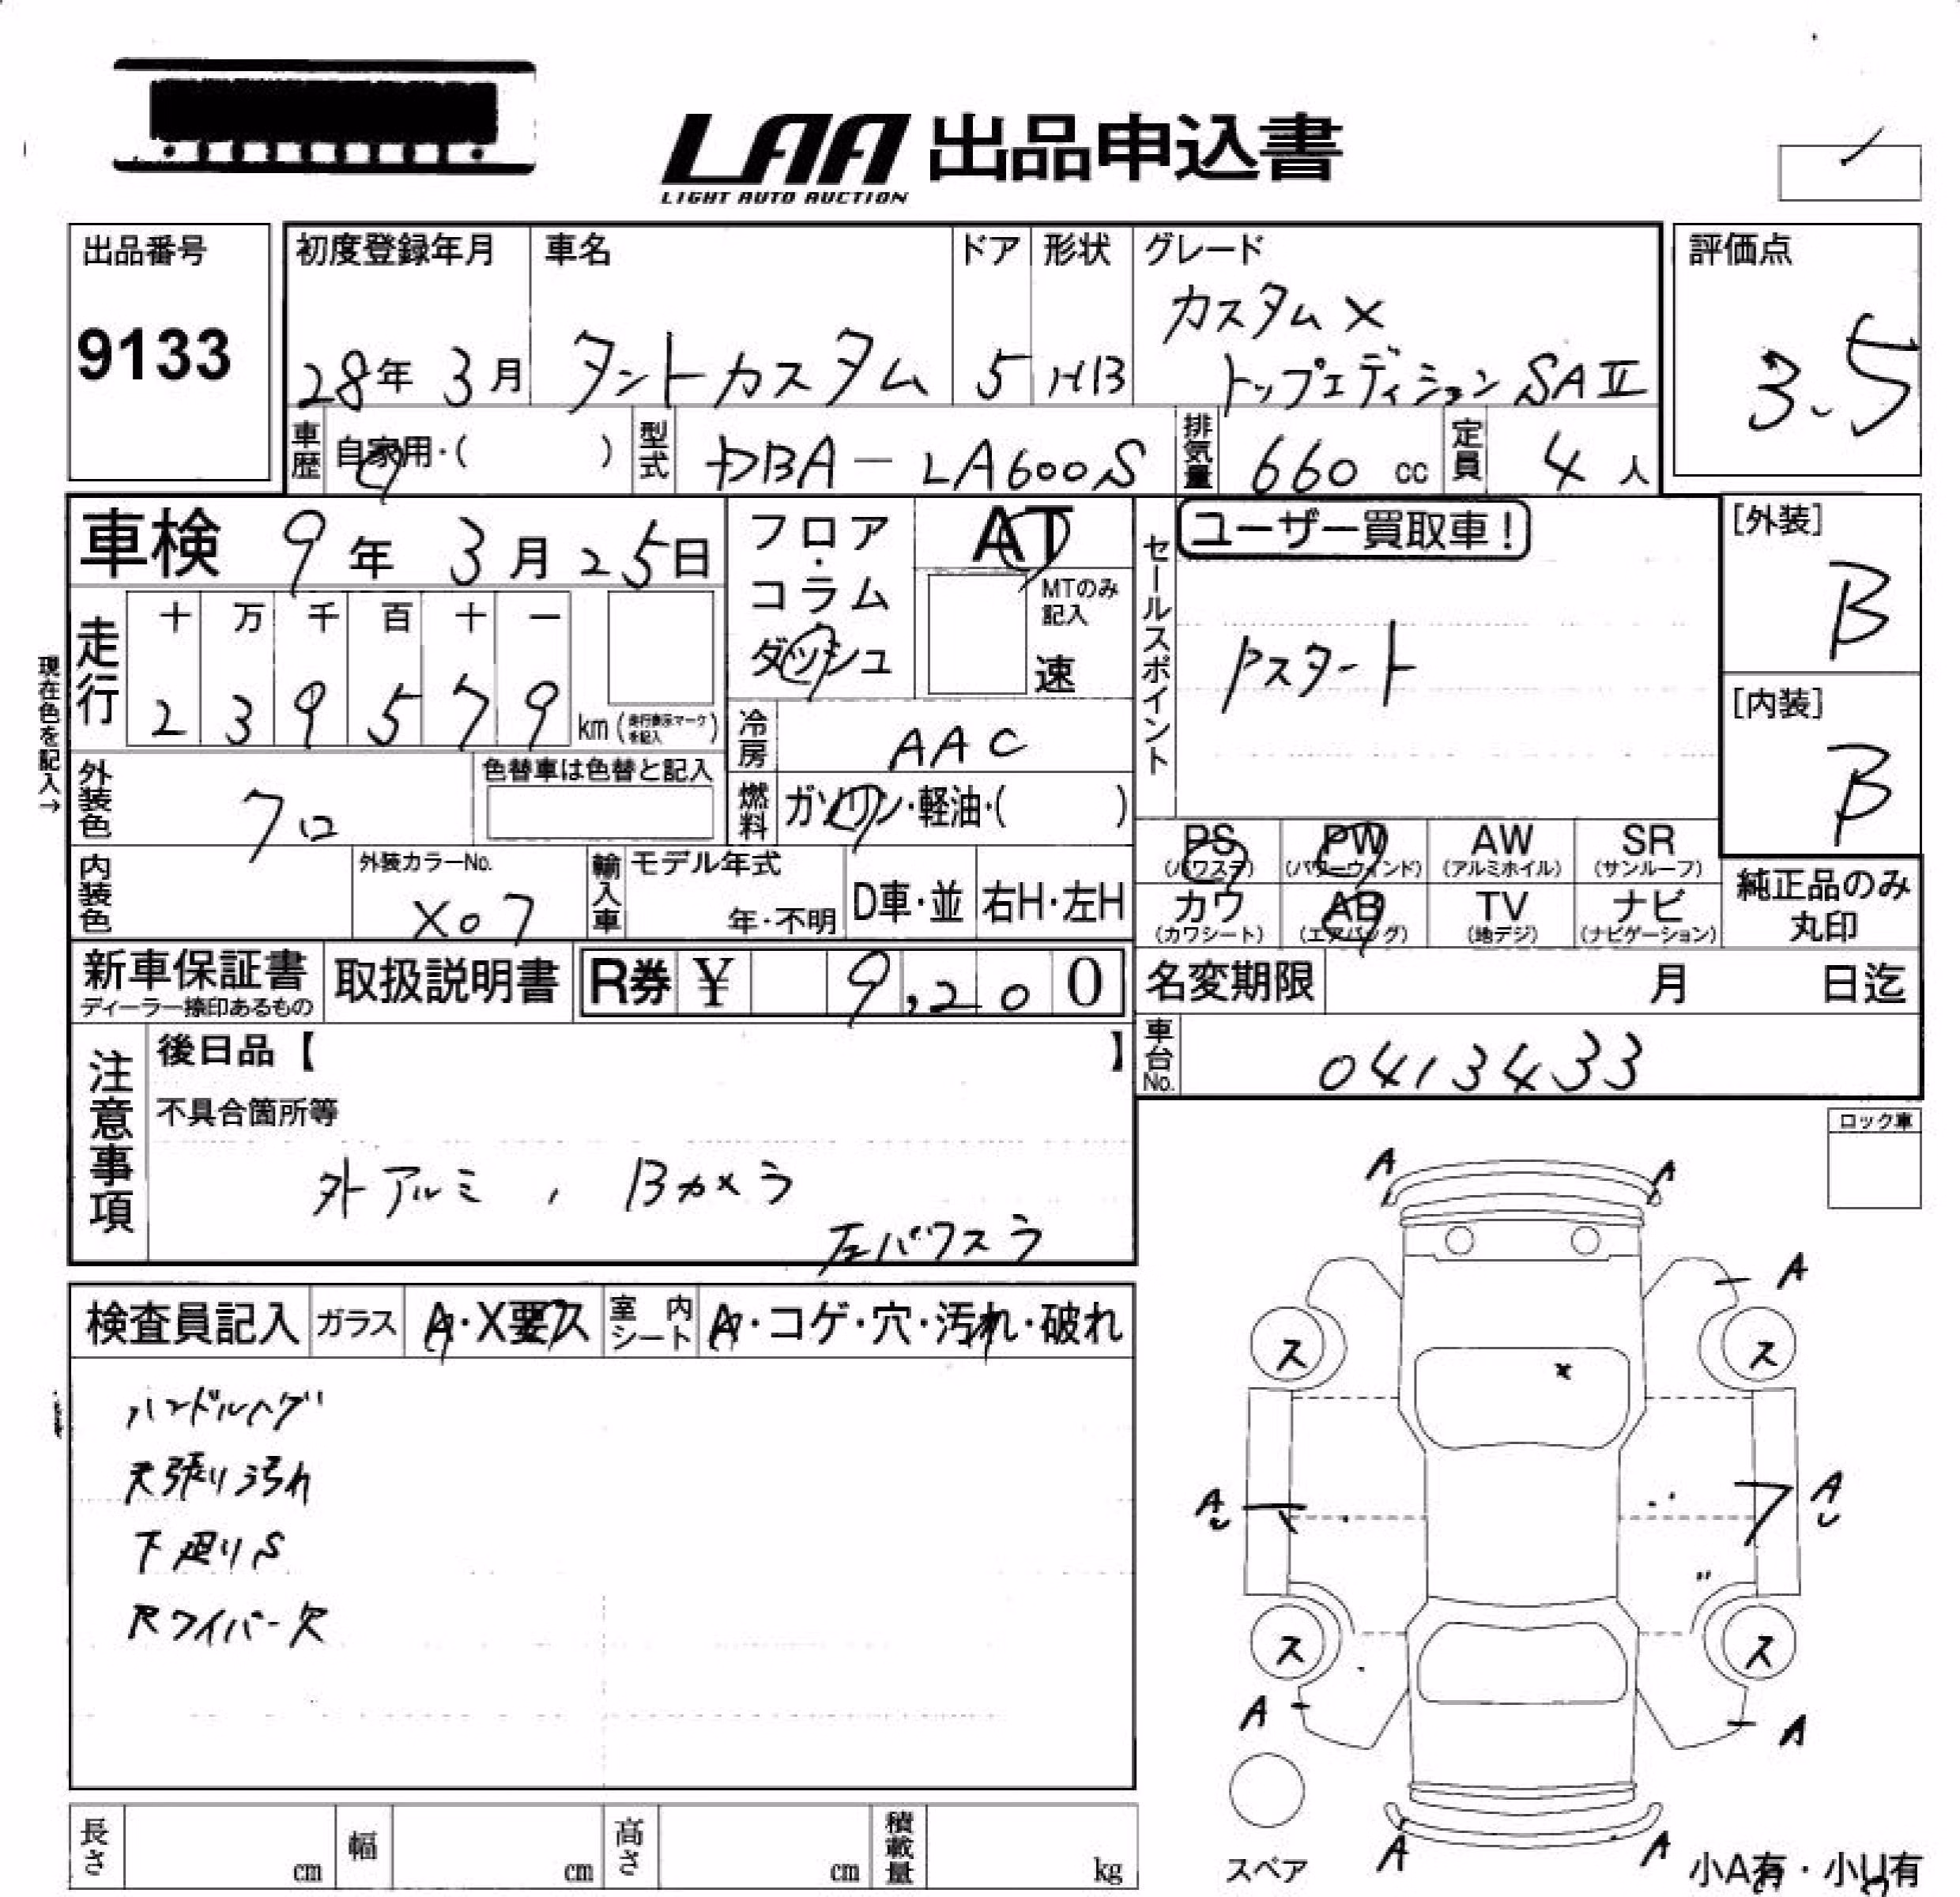 LAA 出品申込書
LIGHT AUTO AUCTION
出品番号
9133
初度登録年月
28年 3月
車名
タントカスタム
ドア
5
形状
HB
グレード
カスタムX
トップエディションSAⅡ
評価点
3.5
車歴
自家用・( )
型式
DBA-LA600S
排気量
660 cc
定員
4 人
車検 9年 3月 25日
フロア・コラム
ダッシュ
AT
MTのみ
記入
速
セールスポイント
ユーザー買取車!
Pスタート
[外装]
B
[内装]
B
現在色を記入→
走行
十 万 千 百 十 一
2 3 9 5 7 9
km (走行表示マークを記入)
冷房
AAC
外装色
クロ
色替車は色替と記入
燃料
ガソリン・軽油・( )
PS
(パワステ)
PW
(パワーウィンド)
AW
(アルミホイル)
SR
(サンルーフ)
カワ
(カワシート)
AB
(エアバッグ)
TV
(地デジ)
ナビ
(ナビゲーション)
純正品のみ
丸印
内装色
外装カラーNo.
X07
輸入車
モデル年式
年・不明
D車・並
右H・左H
新車保証書
ディーラー捺印あるもの
取扱説明書
R券 ¥ 9,200
名変期限 月 日迄
車台No.
0413433
注意事項
後日品【 】
不具合箇所等
外アルミ , Bカメラ
左パワスラ
ロック車
検査員記入
ガラス
A・X要ス
室内シート
A・コゲ・穴・汚れ・破れ
ハンドルハゲ
天張り汚れ
下廻りS
Rワイパー欠
A A
A
ス ス
x
A A
ス ス
A A
A A
スペア
小A有・小U有
長さ cm
幅 cm
高さ cm
積載量 kg